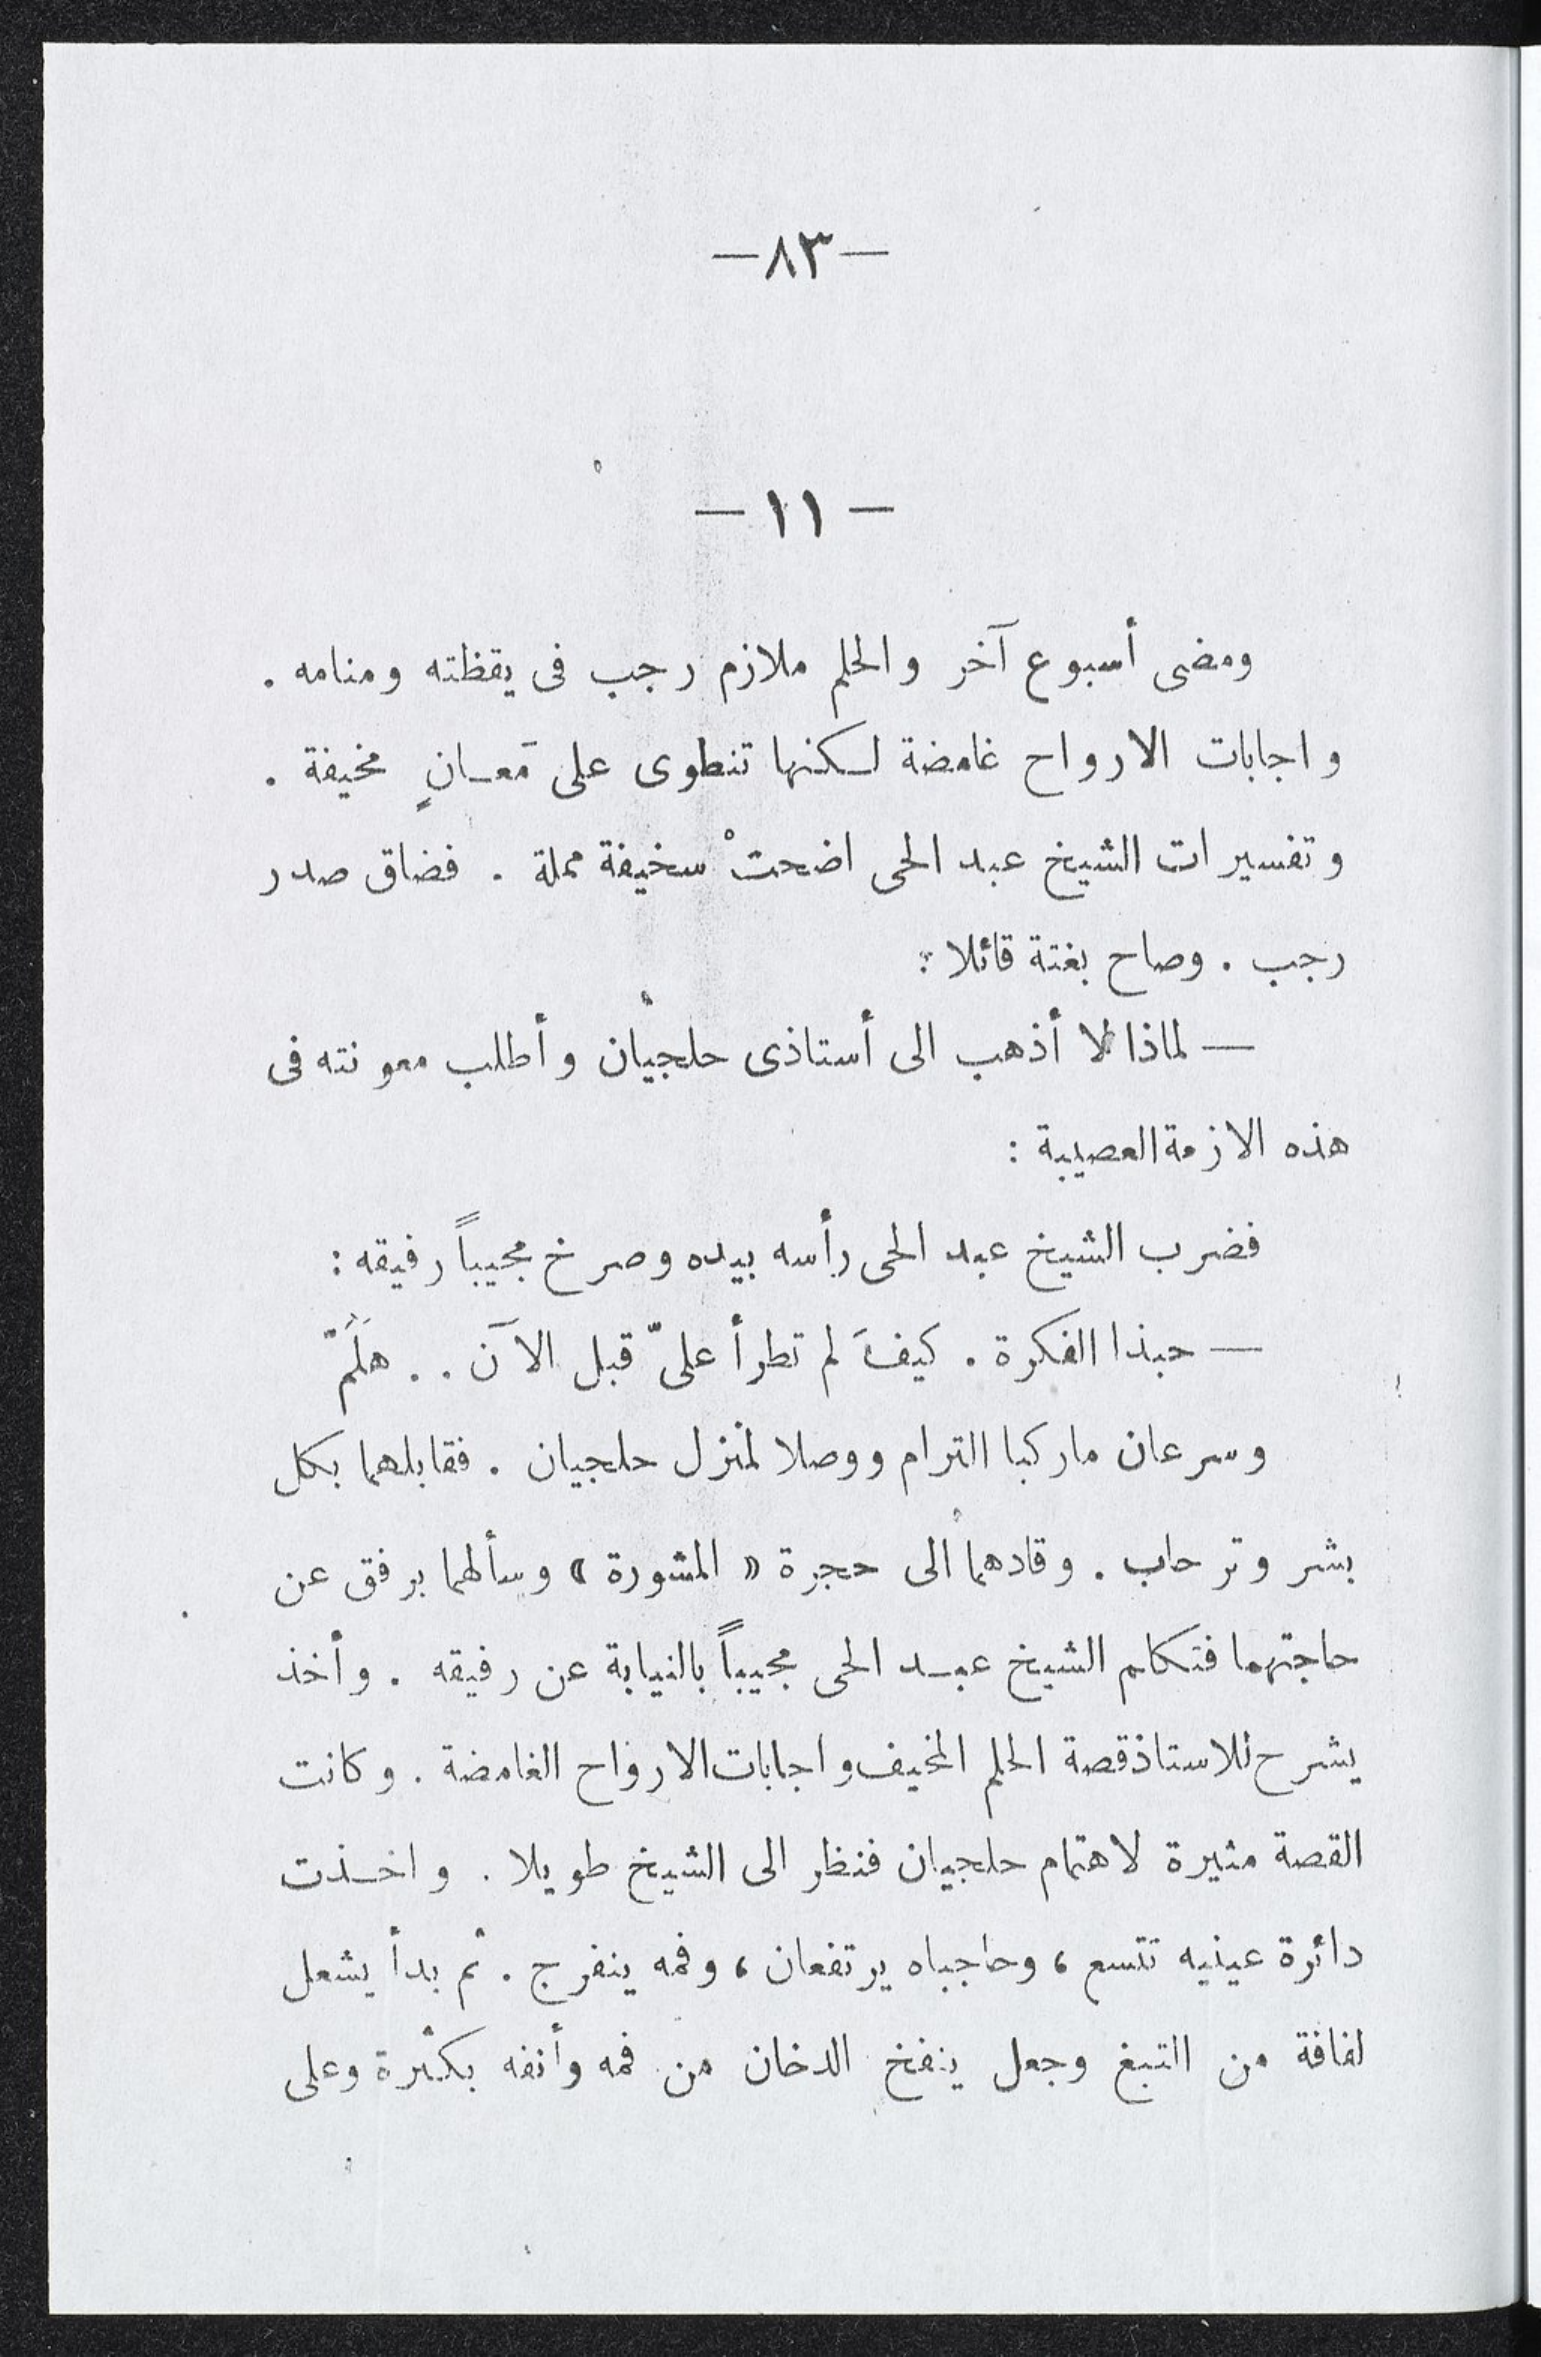 —٨٣—
— ١١ —
ومضى أسبوع آخر والحلم ملازم رجب فى يقظته ومنامه .
واجابات الارواح غامضة لكنها تنطوى على مَعانٍ مخيفة .
وتفسيرات الشيخ عبد الحى اضحتْ سخيفة مملة . فضاق صدر
رجب . وصاح بغتة قائلا :
— لماذا لا أذهب الى أستاذى حلجيان وأطلب معونته فى
هذه الازمة العصيبة :
فضرب الشيخ عبد الحى رأسه بيده وصرخ مجيباً رفيقه :
— حبذا الفكرة . كيفَ لم تطرأ علىّ قبل الآن . . هلَمّ
وسرعان ما ركبا الترام ووصلا لمنزل حلجيان . فقابلهما بكل
بشر وترحاب . وقادهما الى حجرة « المشورة » وسألهما برفق عن
حاجتهما فتكلم الشيخ عبد الحى مجيباً بالنيابة عن رفيقه . وأخذ
يشرح للاستاذ قصة الحلم المخيف واجابات الارواح الغامضة . وكانت
القصة مثيرة لاهتمام حلجيان فنظر الى الشيخ طويلا . واخذت
دائرة عينيه تتسع ، وحاجباه يرتفعان ، وفمه ينفرج . ثم بدأ يشعل
لفافة من التبغ وجعل ينفخ الدخان من فمه وأنفه بكثرة وعلى